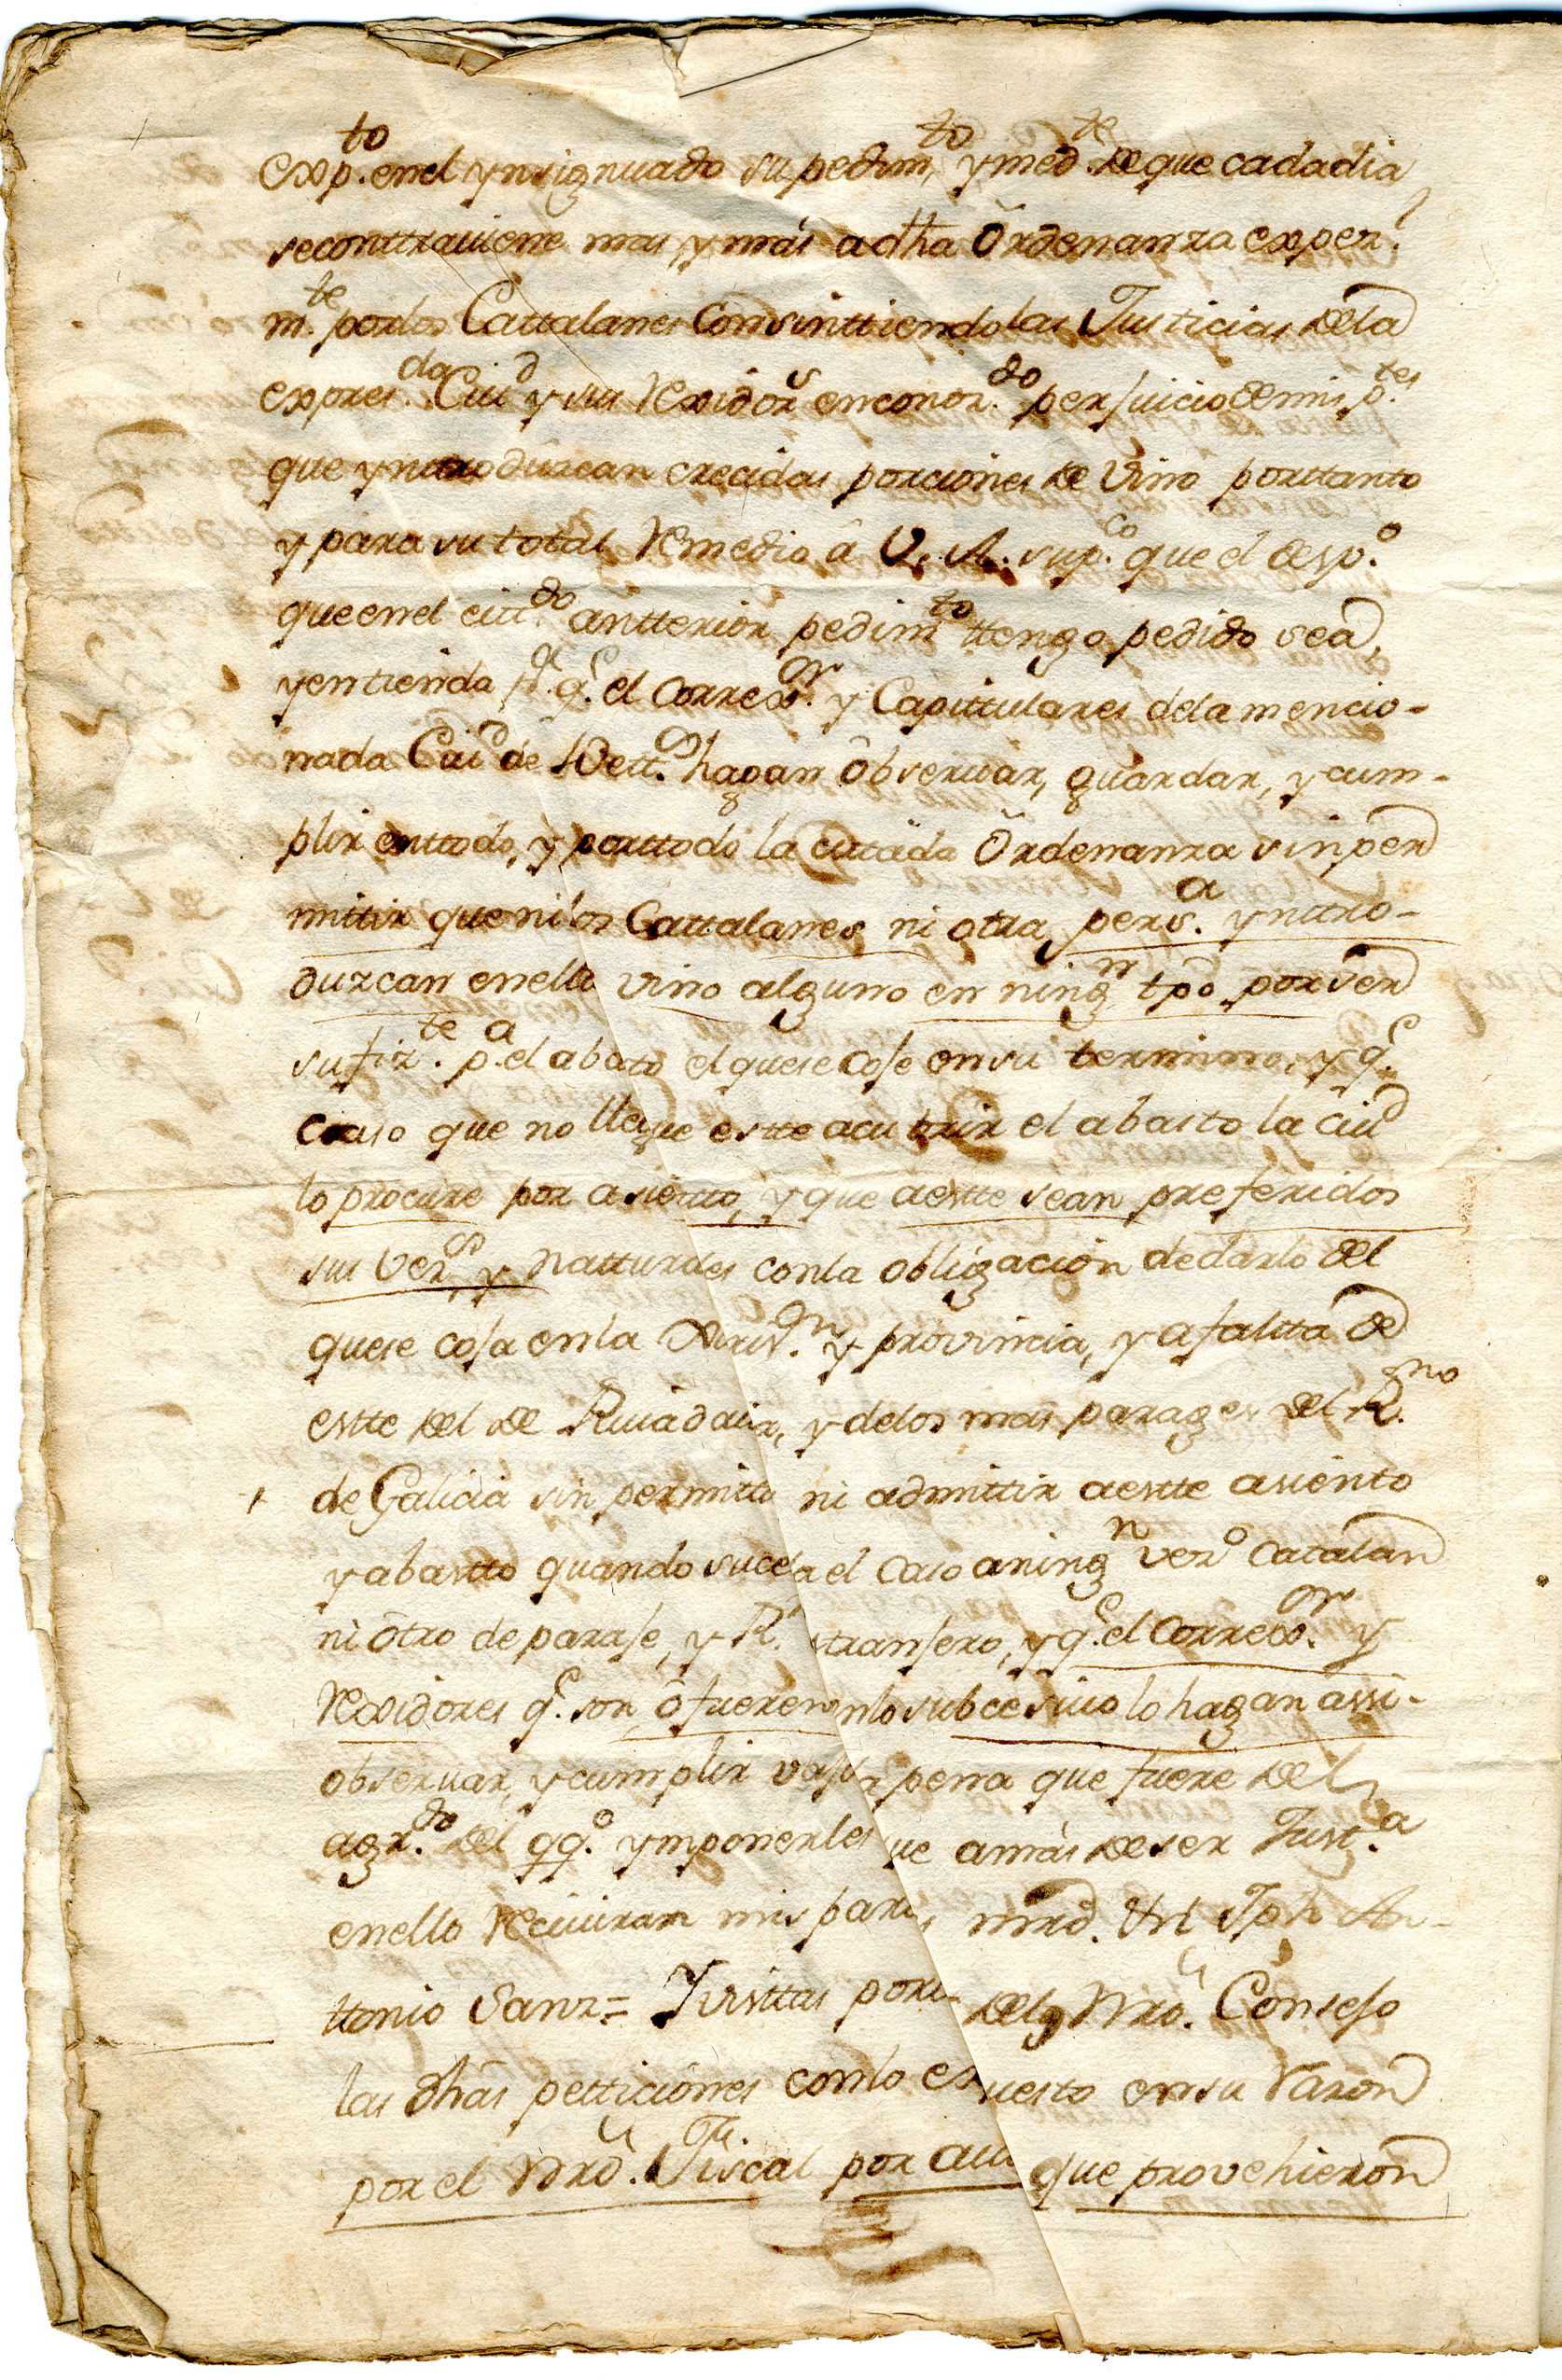 exp.to enel ynsignuado su pedim,to y med.te de que cadadia
seconttrauiene mas y más a dha Ôrdenanza espez.l
m.te porlos Cattalanes Consinttiendolas Justicias dela
expres.da Ciud y sus Rexidors en conoz.do perjuicio de mis p.tes
que ynttroduzcan crecidas porciones de Vino porttanto
y para su total Remedio â V. A. sup.co que el desp.o
que enel citt.do antterior pedimto ttengo pedido sea,
y entienda p.a q.e el Correx.or y Capittulares dela mencio-
nada Ciud de Bett.s hagan Ôbseruar, guardar, y cum-
plir enttodo, y porttodo la cittada Ôrdenanza sin per
mittir que ni los Cattalanes ni otra pers.a ynttro-
duzcan enella vino alguno en ningn tpô por ser
sufiz.te p.a el abato el que se coje en su termino, y q.e
caso que no llegue estte acubrir el abasto la ciud
lo procure por asientto, y que aestte sean preferidos
sus Vez.s y Natturales conla obligacion de darlo del
que se coja enla Jurisd.n y provincia, y afaltta de
estte del de Riuadauia, y delos mas parages del R.no
de Galicia sin permitti ni admittir aestte asiento
y abastto quando suceda el Caso aningn vezo Catalan
ni ôtro de paraje, y R.o stranjero, y q.e el Correx.or y
Rexidores q.e son, ô fueren enlo subcesiuo lo hagan assi-
obseruar, y cumplir vajo la pena que fuere del
agr.do del qq.o ymponerles que amás de ser Just.a
enello Reciuiran mis partes mrd. Vrl Jph An-
ttonio Sanz = Y visttas porlos del Nro. Consejo
las dhâs petticiones conlo expuesto ensu Razon
por el Nrô. Fiscal por auto que provehieron